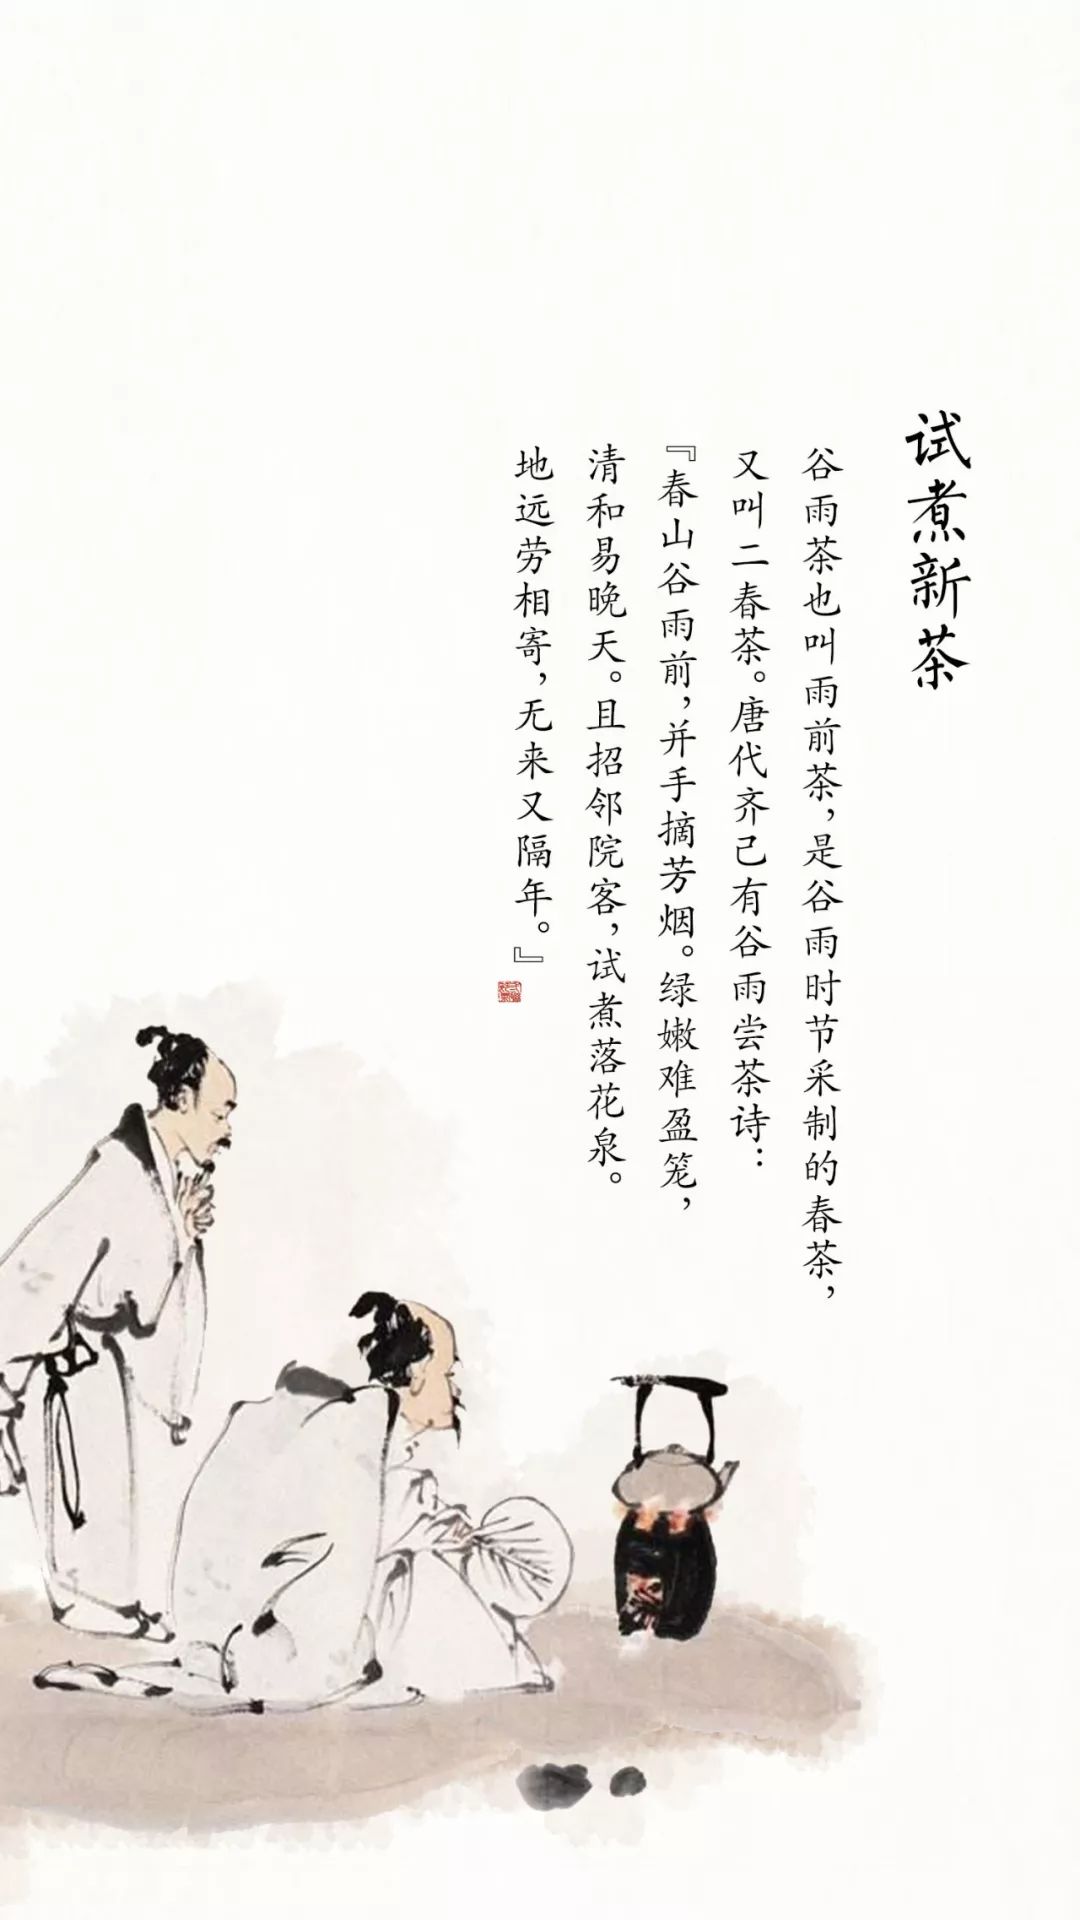 试煮新茶
谷雨茶也叫雨前茶，是谷雨时节采制的春茶，
又叫二春茶。唐代齐己有谷雨尝茶诗：
『春山谷雨前，并手摘芳烟。绿嫩难盈笼，
清和易晚天。且招邻院客，试煮落花泉。
地远劳相寄，无来又隔年。』